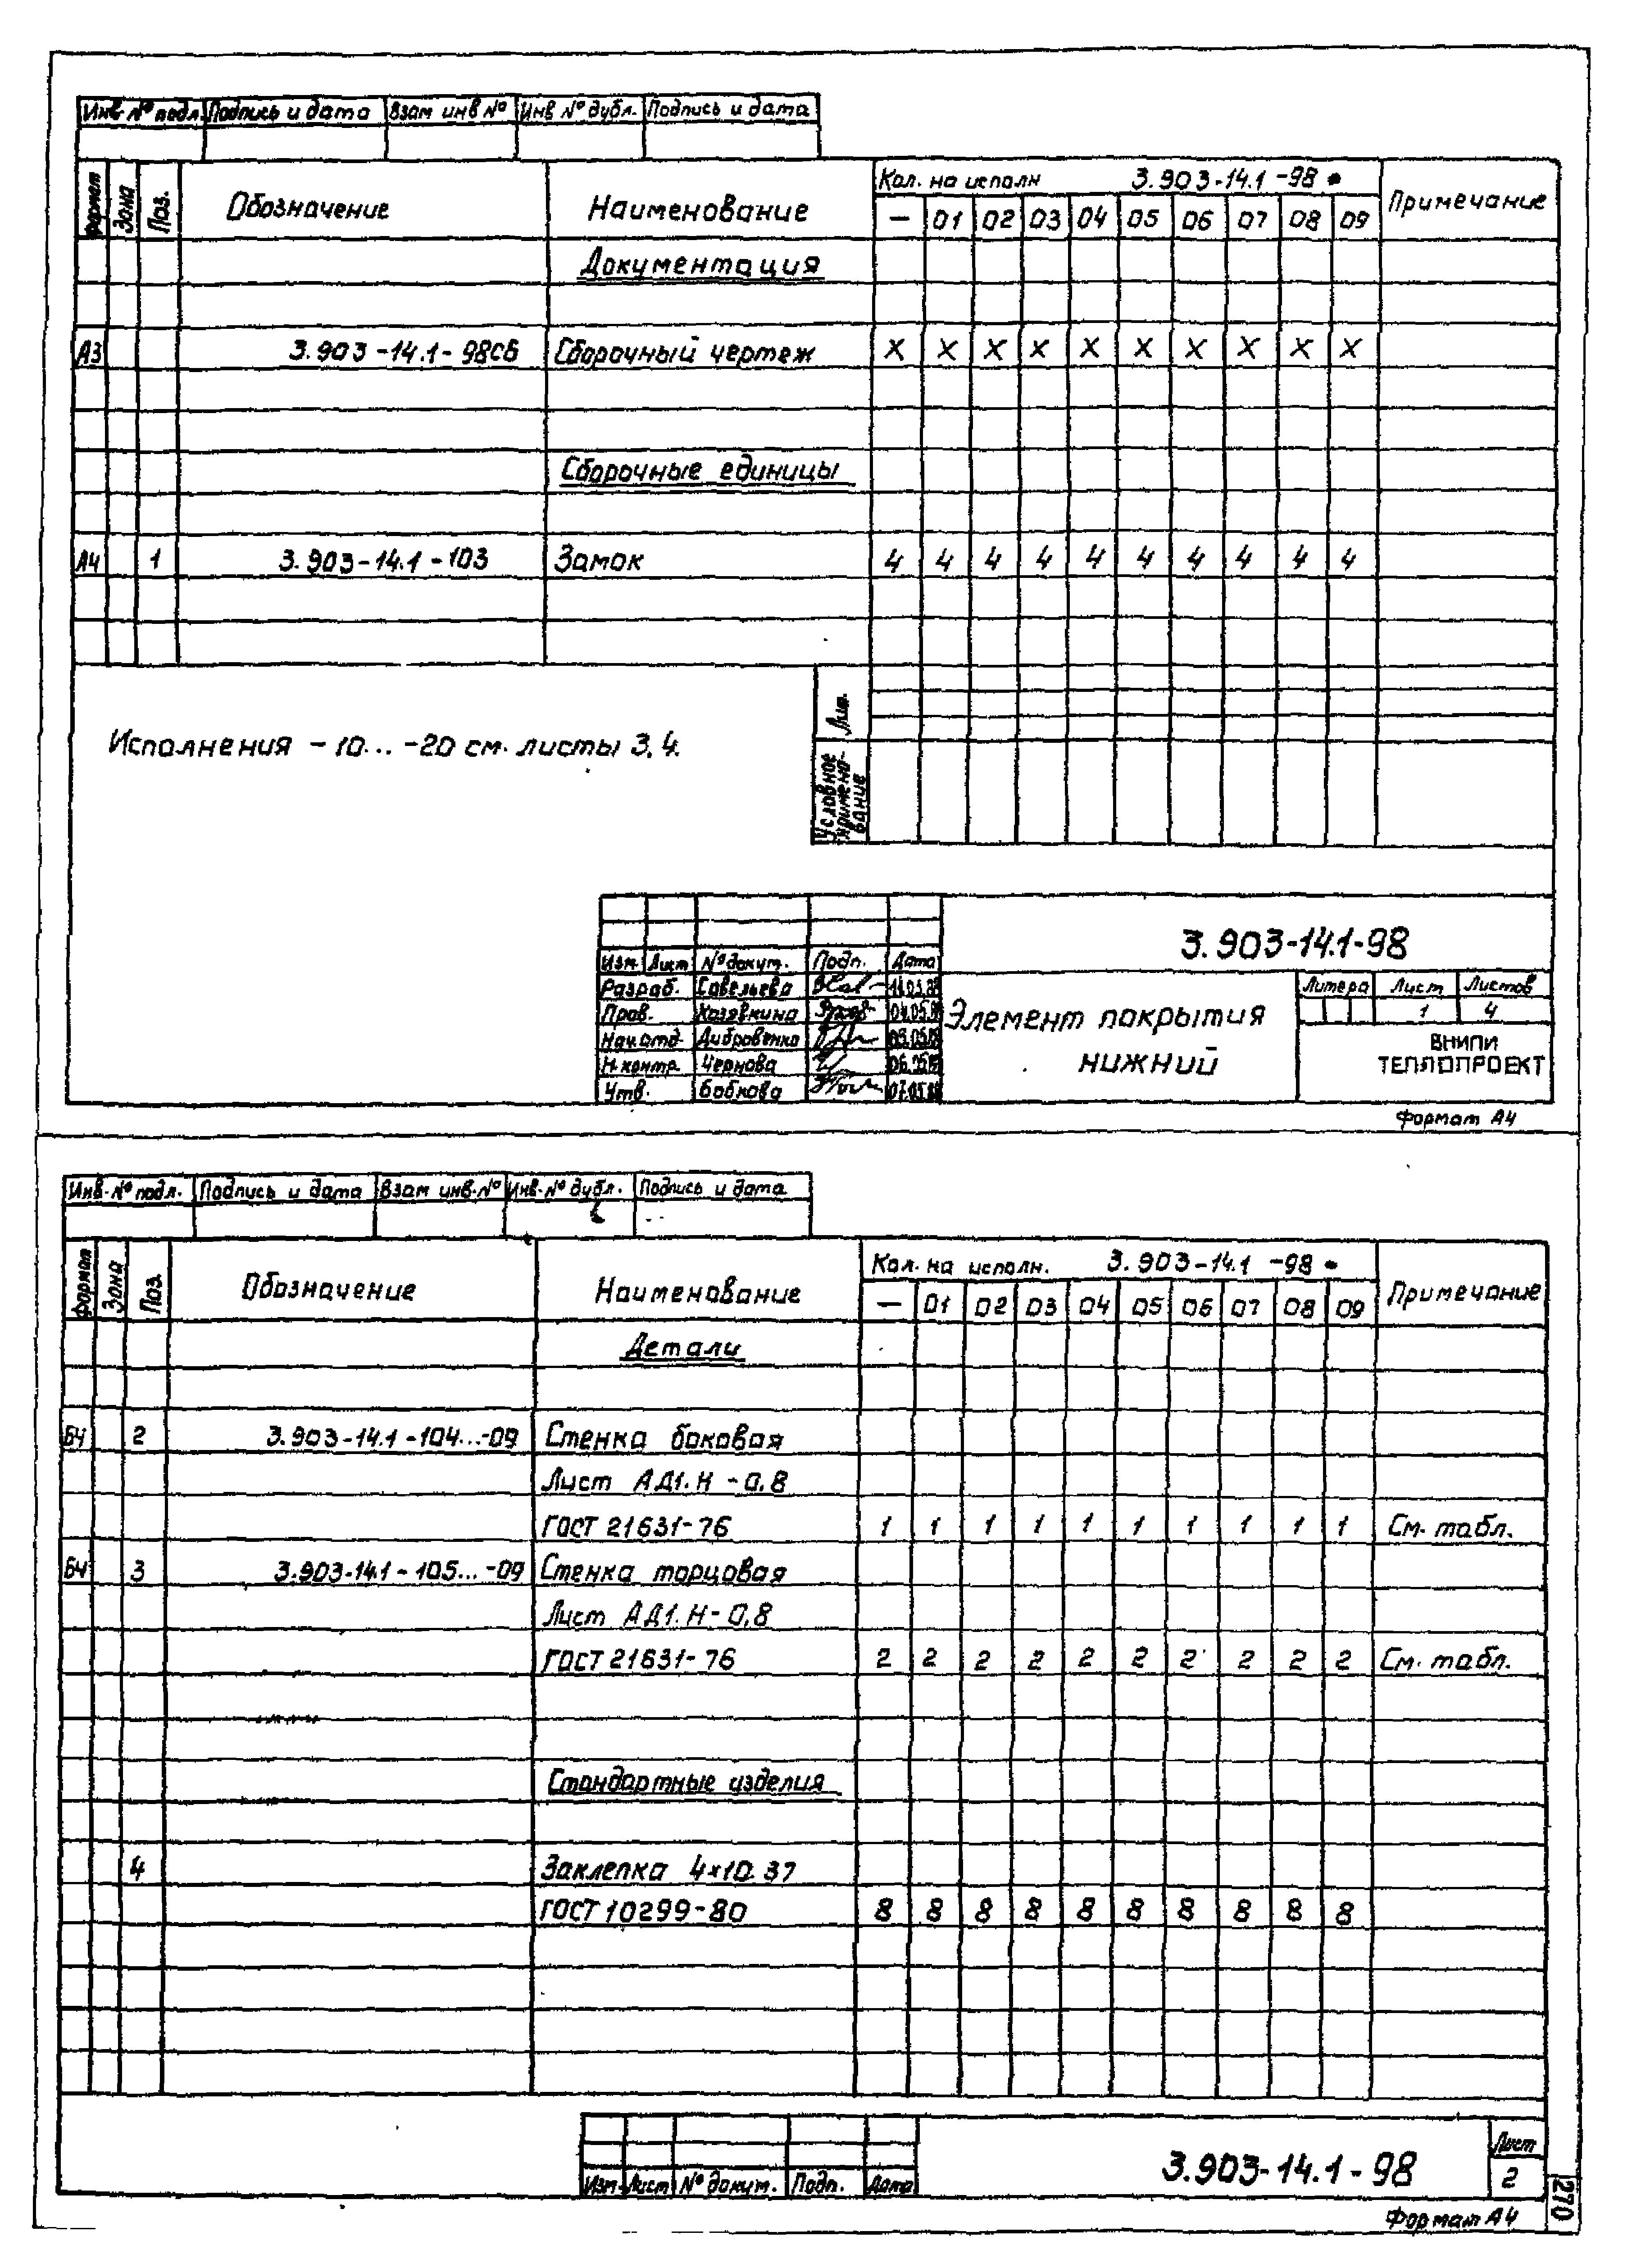 Инв № подл. Подпись и дата Взам инв № Инв № дубл. Подпись и дата
Формат Зона Поз. Обозначение Наименование Кол. на исполн 3.903-14.1-98 Примечание
— 01 02 03 04 05 06 07 08 09
Документация
А3 3.903-14.1-98СБ Сборочный чертеж X X X X X X X X X X
Сборочные единицы
А4 1 3.903-14.1-103 Замок 4 4 4 4 4 4 4 4 4 4
Исполнения -10... -20 см. листы 3,4.
Лит.
Условное наимено-вание
3.903-14.1-98
Изм. Лист № докум. Подп. Дата
Разраб. Савельева
Пров. Хозявкина
Нач.отд Дибровенко
Н.контр. Чернова
Утв. Бобкова
Элемент покрытия нижний
Литера Лист Листов
1 4
ВНИПИ
ТЕПЛОПРОЕКТ
Формат А4
Инв. № подл. Подпись и дата Взам инв. № Инв. № дубл. Подпись и дата
Формат Зона Поз. Обозначение Наименование Кол. на исполн. 3.903-14.1-98 Примечание
— 01 02 03 04 05 06 07 08 09
Детали
БЧ 2 3.903-14.1-104...-09 Стенка боковая
Лист АД1.Н-0,8
ГОСТ 21631-76 1 1 1 1 1 1 1 1 1 1 См. табл.
БЧ 3 3.903-14.1-105...-09 Стенка торцовая
Лист АД1.Н-0,8
ГОСТ 21631-76 2 2 2 2 2 2 2 2 2 2 См. табл.
Стандартные изделия
4 Заклепка 4×10.37
ГОСТ 10299-80 8 8 8 8 8 8 8 8 8 8
Изм. Лист № докум. Подп. Дата
3.903-14.1-98
Лист
2
270
Формат А4